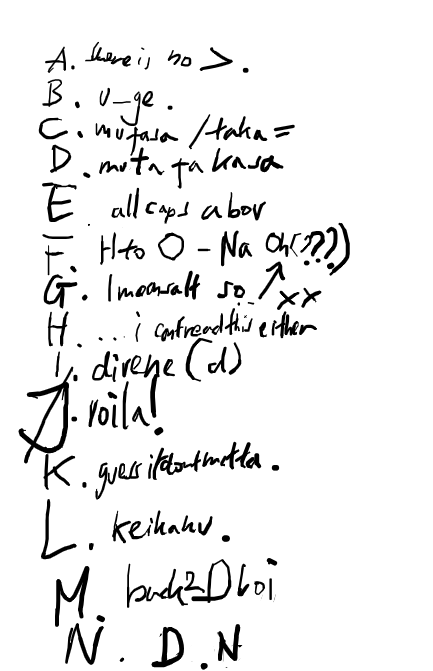 A. there is no >.
B. u-ge.
C. mufasa / taka =
D. muta fa kasa
E. all caps abov
F. H to O - Na Oh(???)
G. I mean salt so xx
H. ... i cant read this either
I. direne (d)
J. voila!
K. guess it dont matta.
L. keikaku.
M. back 2 D boi
N. D.N